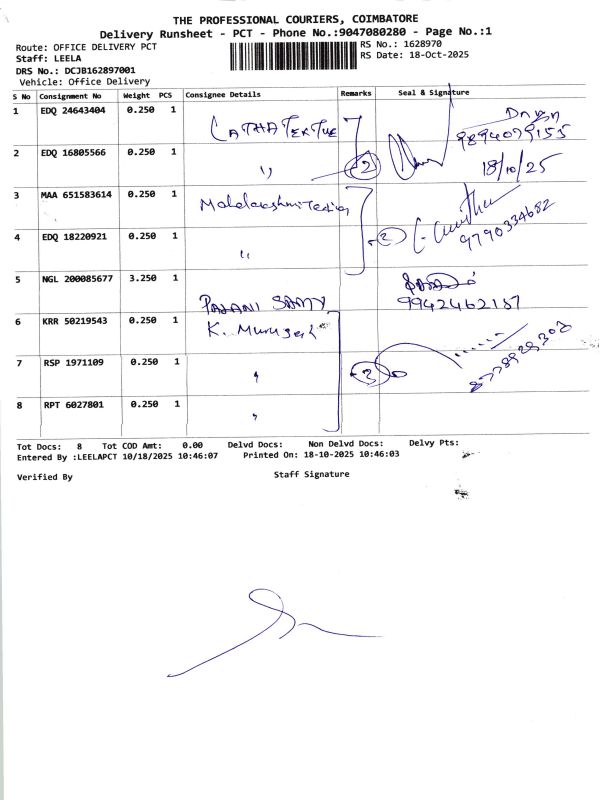 THE PROFESSIONAL COURIERS, COIMBATORE
Delivery Runsheet - PCT - Phone No.:9047080280 - Page No.:1
Route: OFFICE DELIVERY PCT
RS No.: 1628970
Staff: LEELA
RS Date: 18-Oct-2025
DRS No.: DCJB162897001
Vehicle: Office Delivery
S No Consignment No Weight PCS Consignee Details Remarks Seal & Signature
1 EDQ 24643404 0.250 1
9894079155
2 EDQ 16805566 0.250 1 " 2 18/10/25
3 MAA 651583614 0.250 1
9790334682
4 EDQ 18220921 0.250 1 " 2
5 NGL 200085677 3.250 1 PALANI SAMY
9942462157
6 KRR 50219543 0.250 1 K. Murugesh
7 RSP 1971109 0.250 1 " 3
8 RPT 6027801 0.250 1 "
Tot Docs: 8 Tot COD Amt: 0.00 Delvd Docs: Non Delvd Docs: Delvy Pts:
Entered By :LEELAPCT 10/18/2025 10:46:07 Printed On: 18-10-2025 10:46:03
Verified By Staff Signature